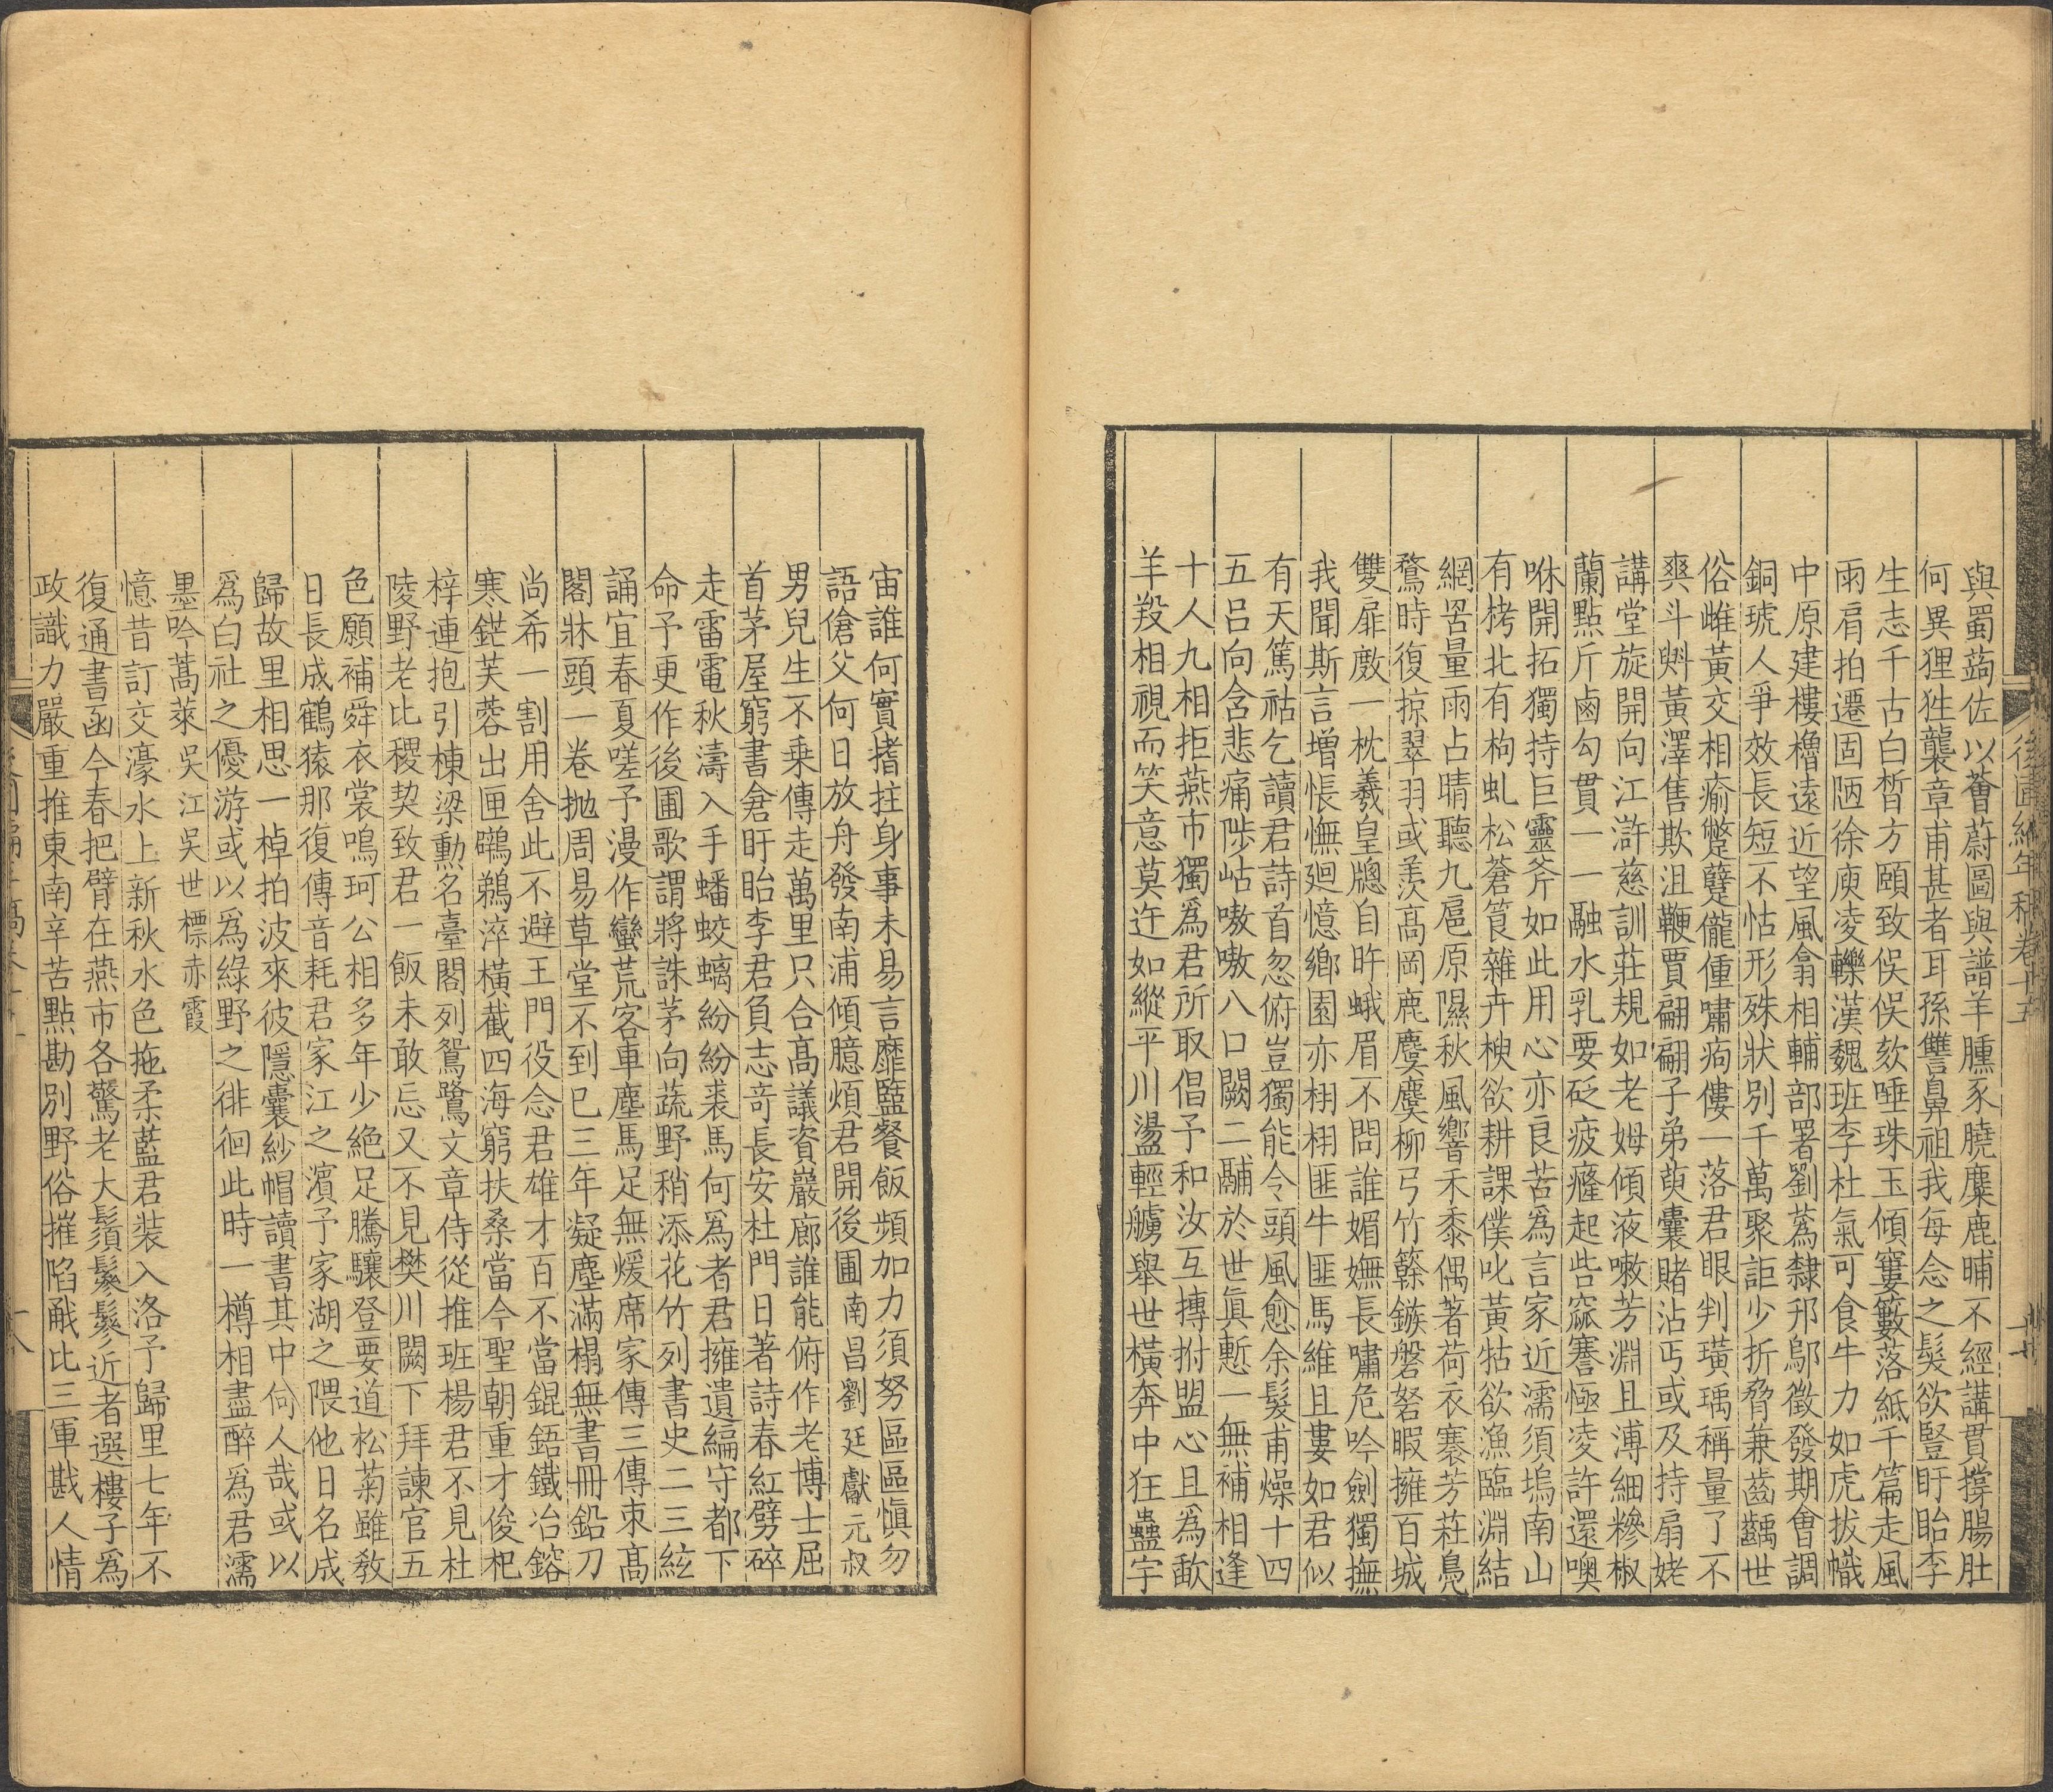 與蜀蒟佐以薈蔚圖與譜羊臛豕膮麋鹿晡不經講貫撐腸肚
何異狸狌襲章甫甚者耳孫讐鼻祖我每念之髮欲豎盱眙李
生志千古白晳方頤致俣俣欬唾珠玉傾寠籔落紙千篇走風
雨肩拍遷固陋徐庾凌轢漢魏班李杜氣可食牛力如虎拔幟
中原建樓櫓遠近望風翕相輔部署劉蒍隸邘鄔徵發期會調
銅琥人爭效長短不怙形殊狀別千萬聚詎少折脅兼齒齲世
俗雌黃交相瘉蹩躠儱偅嘯痀僂一落君眼判璜瑀稱量了不
爽斗斞黃澤售欺沮鞭賈翩翩子弟萸囊賭沾丐或及持扇姥
講堂旋開向江滸慈訓莊規如老姆傾液嗽芳淵且溥細糝椒
蘭點斤鹵勾貫一一融水乳要砭疲癃起呰窳謇極凌許還噢
咻開拓獨持巨靈斧如此用心亦良苦為言家近濡須塢南山
有栲北有枸虬松蒼筤雜卉楰欲耕課僕叱黃牯欲漁臨淵結
網罟量雨占晴聽九扈原隰秋風響禾黍偶著荷衣褰芳莊鳧
鶩時復掠翠羽或羨高岡鹿麌麌柳弓竹簳鏃磐砮暇擁百城
雙扉廒一枕羲皇牕自旿蛾眉不問誰媚嫵長嘯危吟劍獨撫
我聞斯言增悵憮廻憶鄉園亦栩栩匪牛匪馬維且婁如君似
有天篤祜乞讀君詩首忽俯豈獨能令頭風愈余髮甫燥十四
五呂向含悲痛陟岵嗷嗷八口闕二鬴於世眞慙一無補相逢
十人九相拒燕市獨爲君所取倡予和汝互搏拊盟心且爲歃
羊羖相視而笑意莫迕如縱平川盪輕艣舉世橫奔中狂蠱宇
後圃編年稿卷十五
十一
宙誰何實搘拄身事未易言靡盬餐飯頻加力須努區區愼勿
語傖父何日放舟發南浦傾臆煩君開後圃南昌劉廷獻元叔
男兒生不乗傳走萬里只合高議資巖廊誰能俯作老博士屈
首茅屋窮書倉盱眙李君負志奇長安杜門日著詩春紅劈碎
走雷電秋濤入手蟠蛟螭紛紛裘馬何爲者君擁遺編守都下
命予更作後圃歌謂將誅茅向蔬野稍添花竹列書史二三絃
誦宜春夏嗟予漫作蠻荒客車塵馬足無煖席家傳三傳束高
閣牀頭一卷拋周易草堂不到已三年凝塵滿榻無書冊鉛刀
尚希一割用舍此不避王門役念君雄才百不當錕鋙鐵冶鎔
寒鋩芙蓉出匣鸊鵜淬橫截四海窮扶桑當今聖朝重才俊杞
梓連抱引棟梁勳名臺閣列鴛鷺文章侍從推班楊君不見杜
陵野老比稷契致君一飯未敢忘又不見樊川闕下拜諫官五
色願補舜衣裳鳴珂公相多年少絶足騰驤登要道松菊雖教
日長成鶴猿那復傳音耗君家江之濱予家湖之隈他日名成
歸故里相思一棹拍波來彼隱囊紗帽讀書其中伺人哉或以
爲白社之優游或以爲綠野之徘徊此時一樽相盡醉爲君濡
墨吟蒿萊吳江吳世標赤霞
憶昔訂交濠水上新秋水色拖柔藍君装入洛予歸里七年不
復通書函今春把臂在燕市各驚老大鬚鬖鬖近者選樓子爲
政識力嚴重推東南辛苦點勘別野俗摧陷酣比三軍戡人情